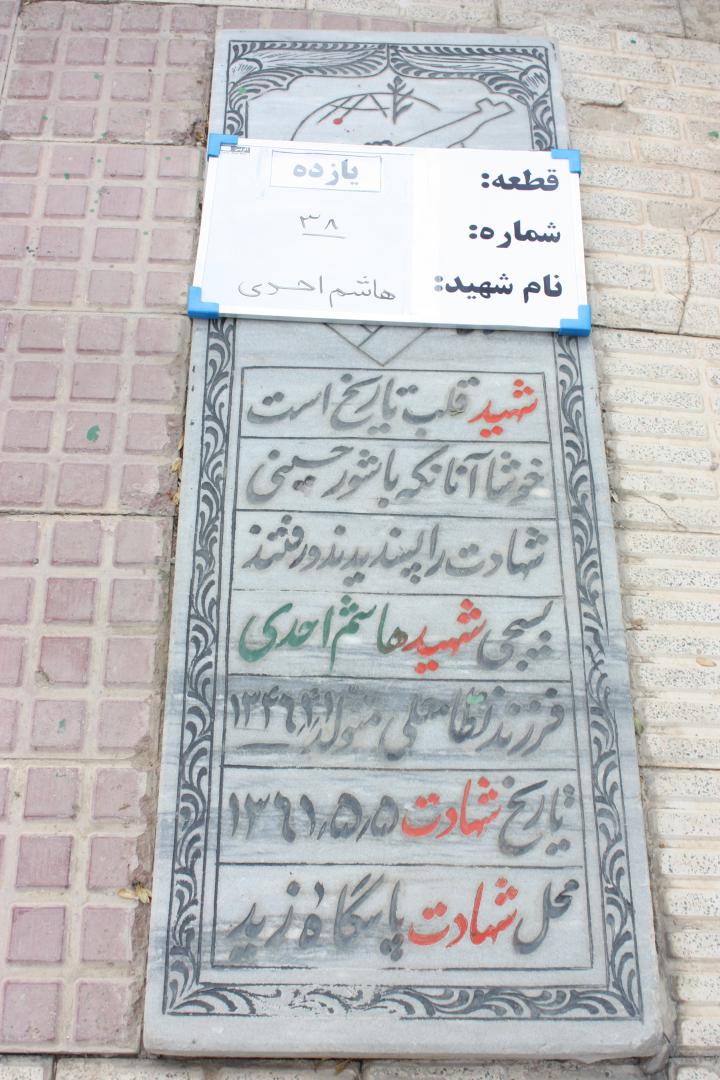 قطعه: یازده
شماره: ۳۸
نام شهید: هاشم احدی
شهید قلب تاریخ است
خوشا آنانکه با شور حسینی
شهادت را پسندیدند و رفتند
بسیجی شهید هاشم احدی
فرزند نظامعلی متولد ۱۳۴۶
تاریخ شهادت ۱۳۶۱٫۵٫۵
محل شهادت پاسگاه زید